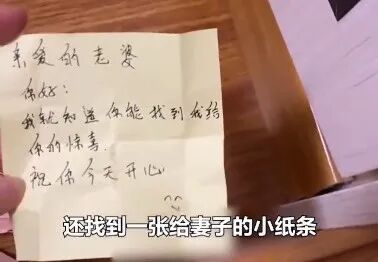 亲爱的老婆
你好:
我就知道你能找到我给
你的惊喜.
祝你今天开心
还找到一张给妻子的小纸条